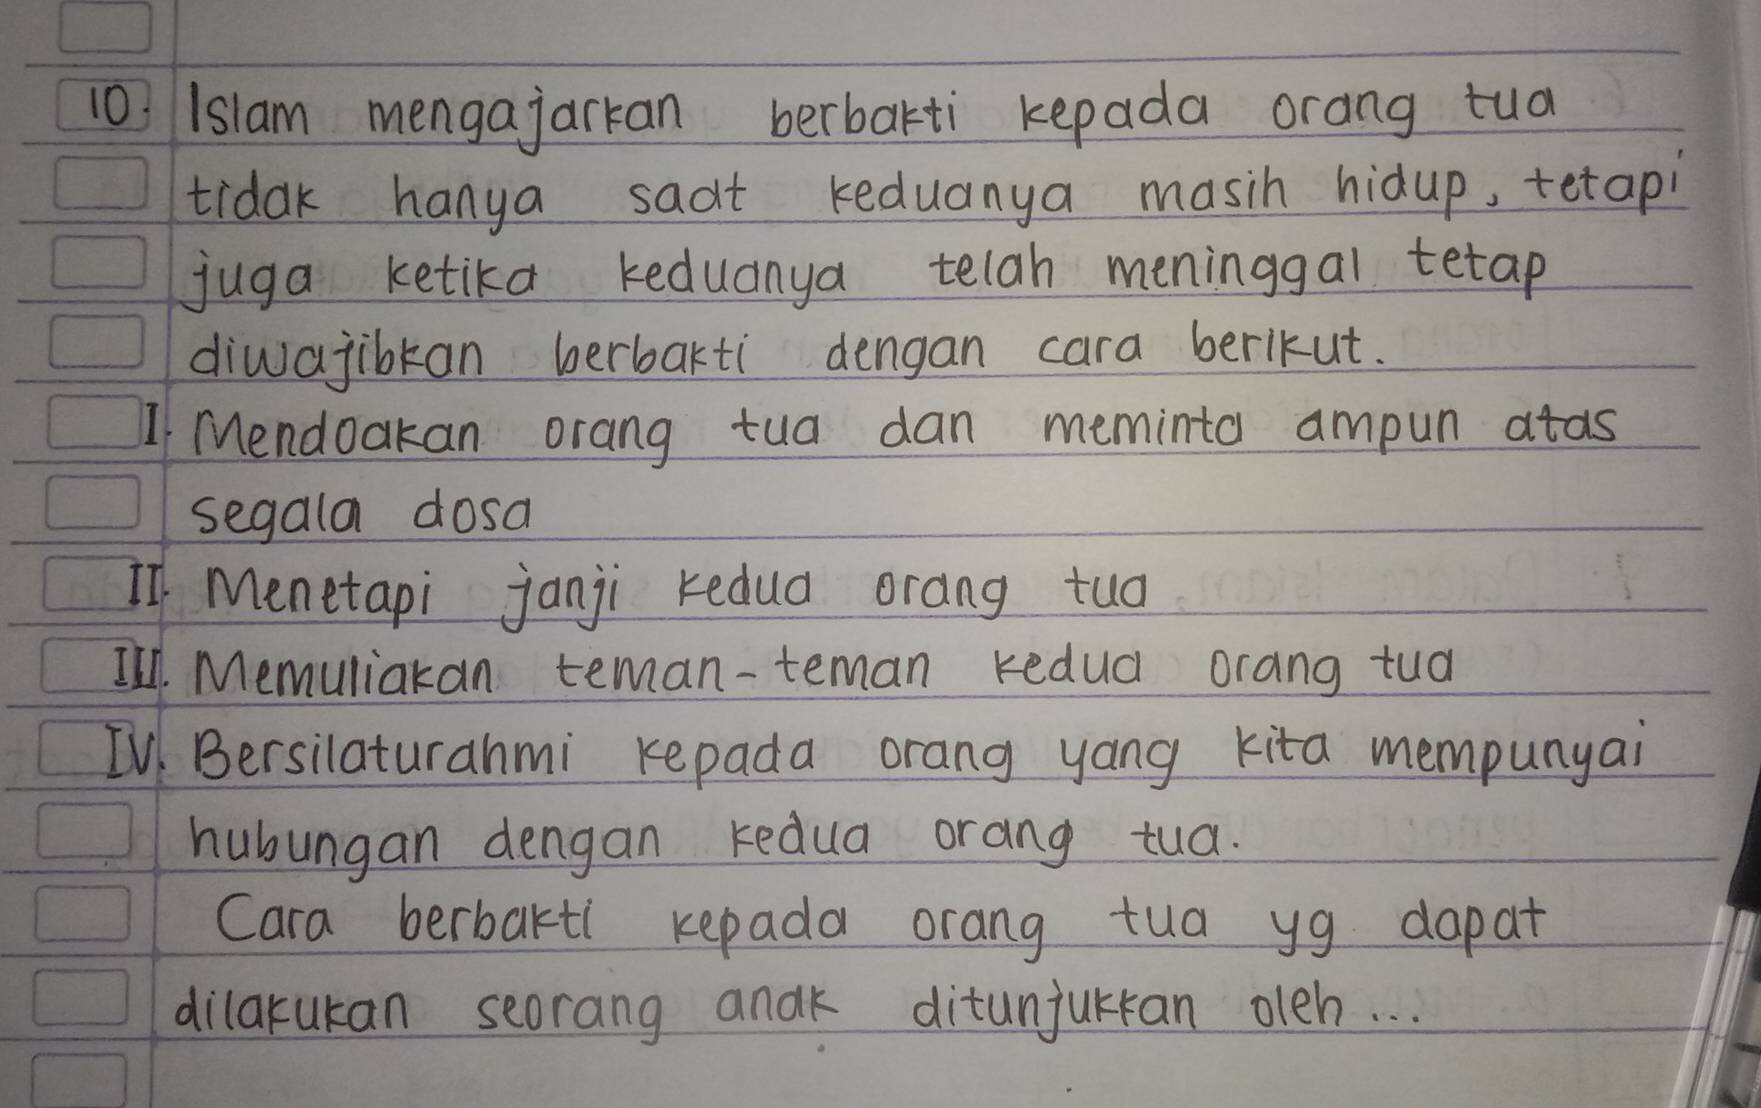 10. Islam mengajarkan berbakti kepada orang tua
tidak hanya saat keduanya masih hidup, tetapi
juga ketika keduanya telah meninggal tetap
diwajibkan berbakti dengan cara berikut.
I. Mendoakan orang tua dan meminta ampun atas
segala dosa
II. Menetapi janji kedua orang tua
III. Memuliakan teman-teman kedua orang tua
IV. Bersilaturahmi kepada orang yang kita mempunyai
hubungan dengan kedua orang tua.
Cara berbakti kepada orang tua yg dapat
dilakukan seorang anak ditunjukkan oleh...